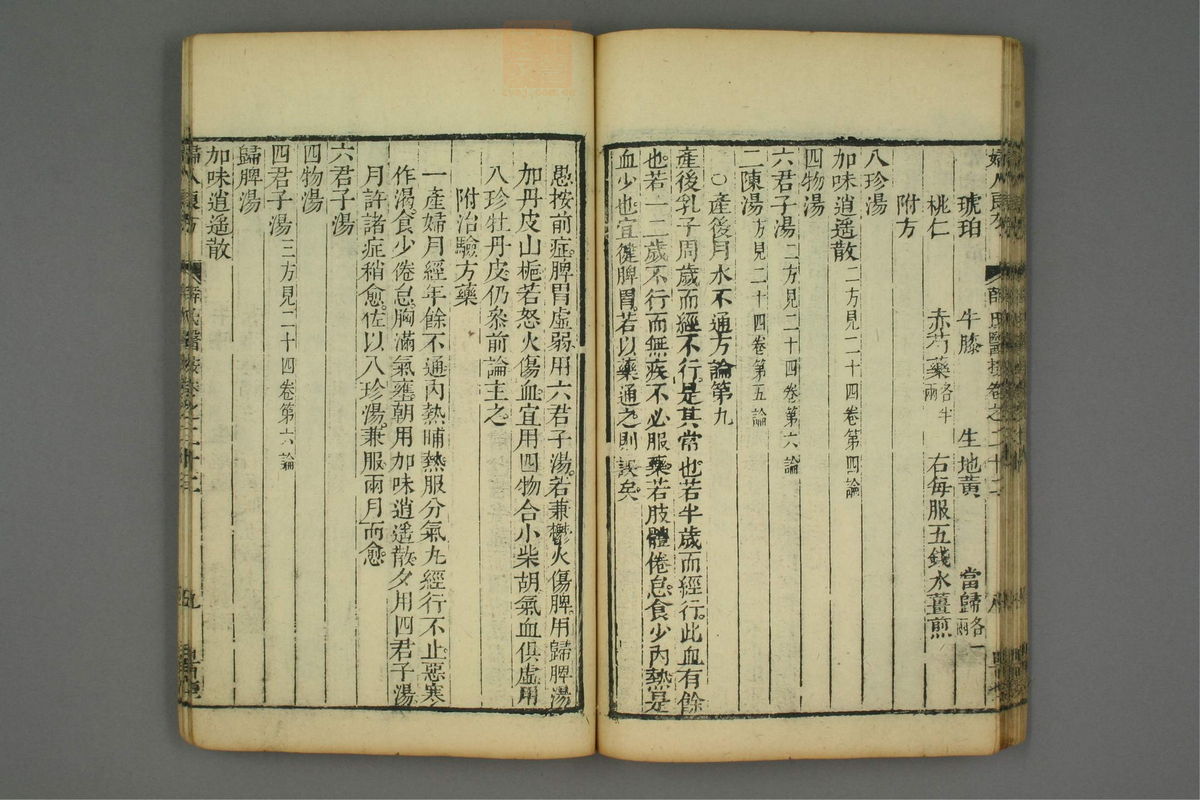 琥珀 牛膝 生地黃 當歸各一兩
桃仁 赤芍藥各半兩 右每服五錢水薑煎
附方
八珍湯
加味逍遥散二方見二十四卷第四論
四物湯
六君子湯二方見二十四卷第六論
二陳湯方見二十四卷第五論
○產後月水不通方論第九
產後乳子周歲而經不行是其常也若半歲而經行此血有餘
也若一二歲不行而無疾不必服藥若肢體倦怠食少內熱是
血少也宜健脾胃若以藥通之則誤矣
愚按前症脾胃虛弱用六君子湯若兼鬱火傷脾用歸脾湯
加丹皮山梔若怒火傷血宜用四物合小柴胡氣血俱虛用
八珍牡丹皮仍叅前論主之
附治驗方藥
一產婦月經年餘不通內熱晡熱服分氣丸經行不止惡寒
作渴食少倦怠胸滿氣壅朝用加味逍遥散夕用四君子湯
月許諸症稍愈佐以八珍湯兼服兩月而愈
六君子湯
四物湯
四君子湯三方見二十四卷第六論
歸脾湯
加味逍遥散